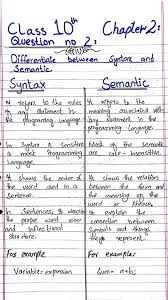 Class 10th Chapter 2:
Question no 2:
Differentiate between Syntax and
Semantic.
Syntax
It refers to the rules
of any statement in
the programing language.
Syntax is Sensitive
in most Programming
Language
It shows the order of
the word and in a
Sentence.
In Sentences,
the proper word over
and inflectional
structure.
For example
Variable = expression
Semantic
It refers to the
meaning associated with
any statement in the
programming language.
Most of the semantic
are case-insensitive.
It shows the relation
between the form and
the meaning by the
word or
It explain the
connection between
Symbols and things
they represent.
For example:
Sum = a+b;